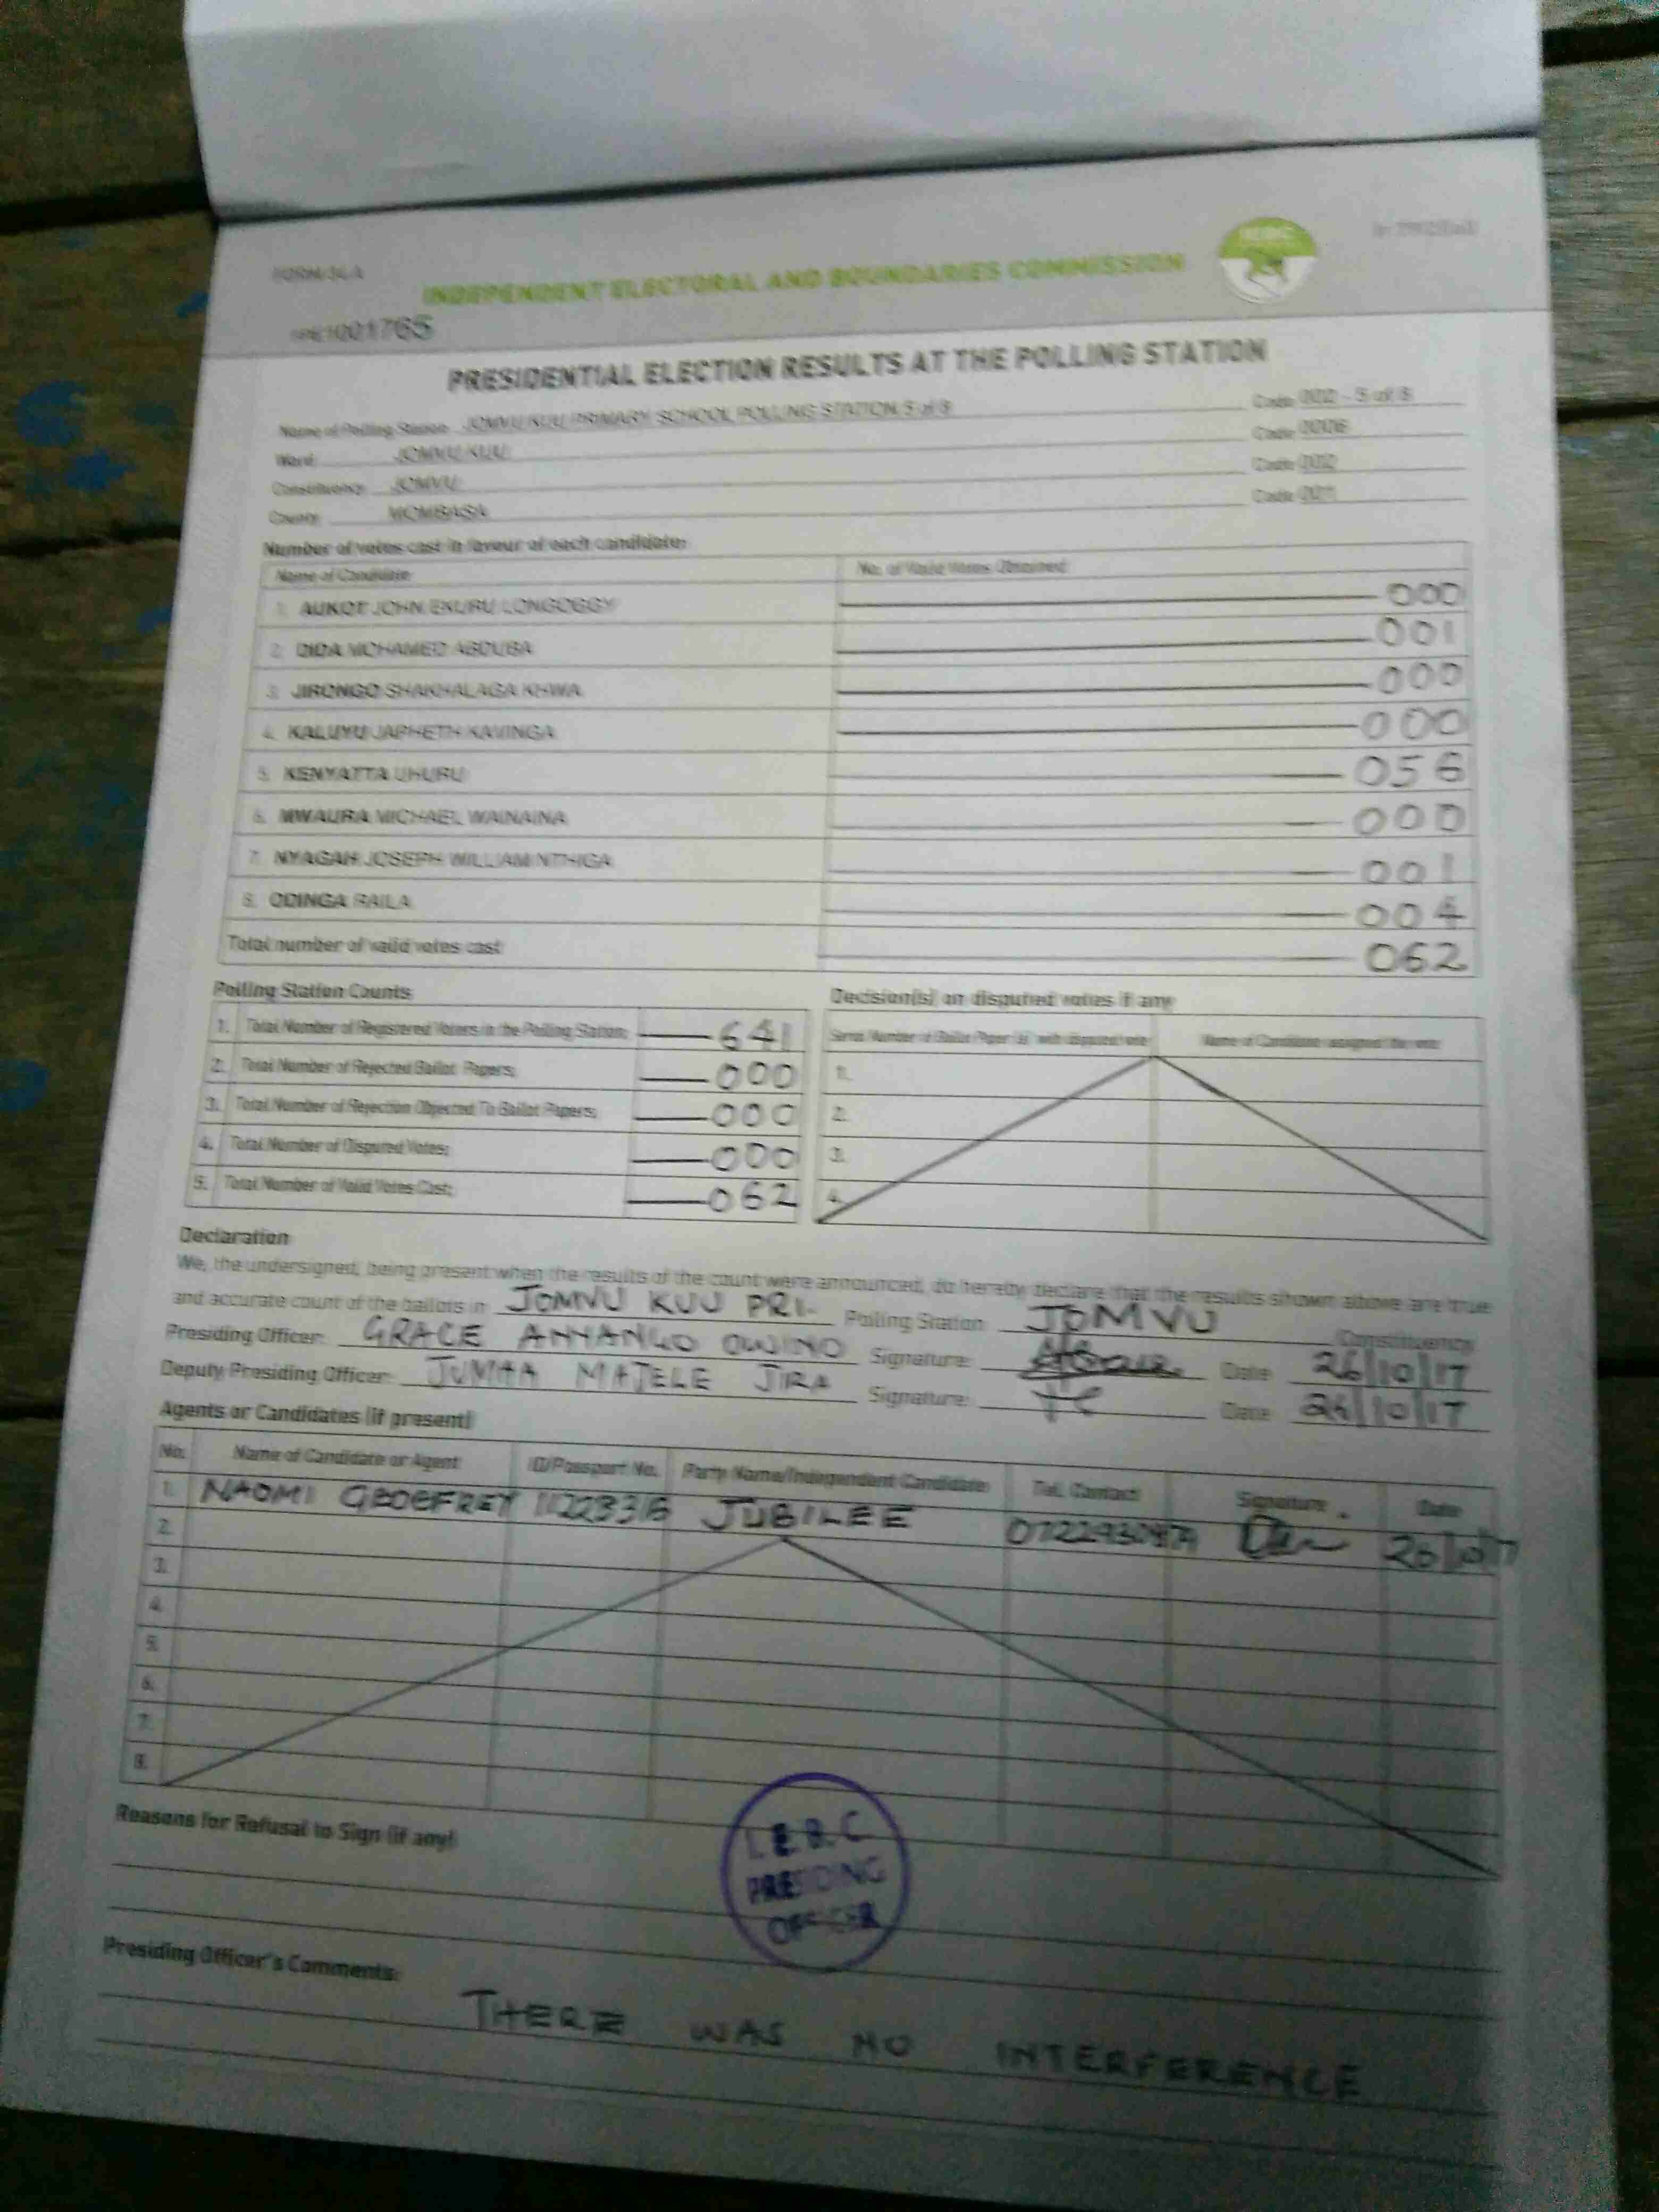 FORM 34A
INDEPENDENT ELECTORAL AND BOUNDARIES COMMISSION
IEBC
1001765
PRESIDENTIAL ELECTION RESULTS AT THE POLLING STATION
Name of Polling Station JOMVU KUU PRIMARY SCHOOL POLLING STATION 5 of 8 Code 002 - 5 of 8
Ward JOMVU KUU Code 0006
Constituency JOMVU Code 002
County MOMBASA Code 001
Number of votes cast in favour of each candidate:
Name of Candidate No. of Valid Votes Obtained
1. AUKOT JOHN EKURU LONGOGGY 000
2. DIDA MOHAMED ABDUBA 001
3. JIRONGO SHAKHALAGA KHWA 000
4. KALUYU JAPHETH KAVINGA 000
5. KENYATTA UHURU 056
6. MWAURA MICHAEL WAINAINA 000
7. NYAGAH JOSEPH WILLIAM NTHIGA 001
8. ODINGA RAILA 004
Total number of valid votes cast 062
Polling Station Counts
1. Total Number of Registered Voters in the Polling Station; 641
2. Total Number of Rejected Ballot Papers; 000
3. Total Number of Rejection Objected To Ballot Papers; 000
4. Total Number of Disputed Votes; 000
5. Total Number of Valid Votes Cast; 062
Decision(s) on disputed votes if any
Serial Number of Ballot Paper (s) with disputed vote Name of Candidate assigned the vote
1.
2.
3.
4.
Declaration
We, the undersigned, being present when the results of the count were announced, do hereby declare that the results shown above are true
and accurate count of the ballots in JOMVU KUU PRI- Polling Station JOMVU Constituency
Presiding Officer: GRACE ANYANGO OWINO Signature: Date 26/10/17
Deputy Presiding Officer: JUMAA MAJELE JIRA Signature: Date 26/10/17
Agents or Candidates (if present)
No. Name of Candidate or Agent ID/Passport No. Party Name/Independent Candidate Tel. Contact Signature Date
1. NAOMI GEOFFREY JUBILEE
2.
3.
4.
5.
6.
7.
8.
Reasons for Refusal to Sign (if any)
I.E.B.C
PRESIDING
OFFICER
Presiding Officer's Comments:
THERE WAS NO INTERFERENCE